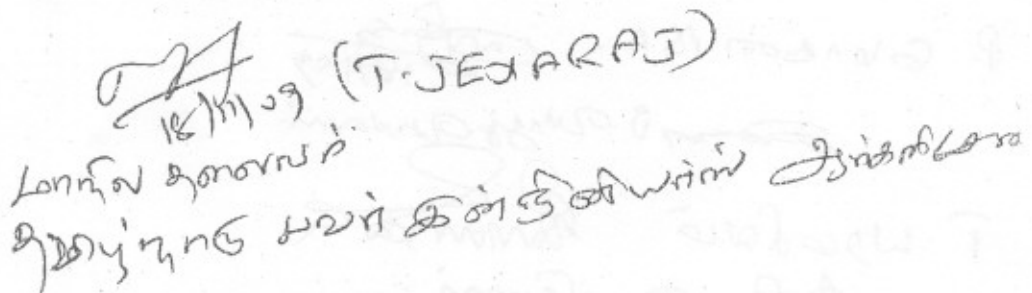 18/11/09 (T. JEYARAJ)
மாநில தலைவர்
தமிழ்நாடு பவர் இன்ஜினியர்ஸ்